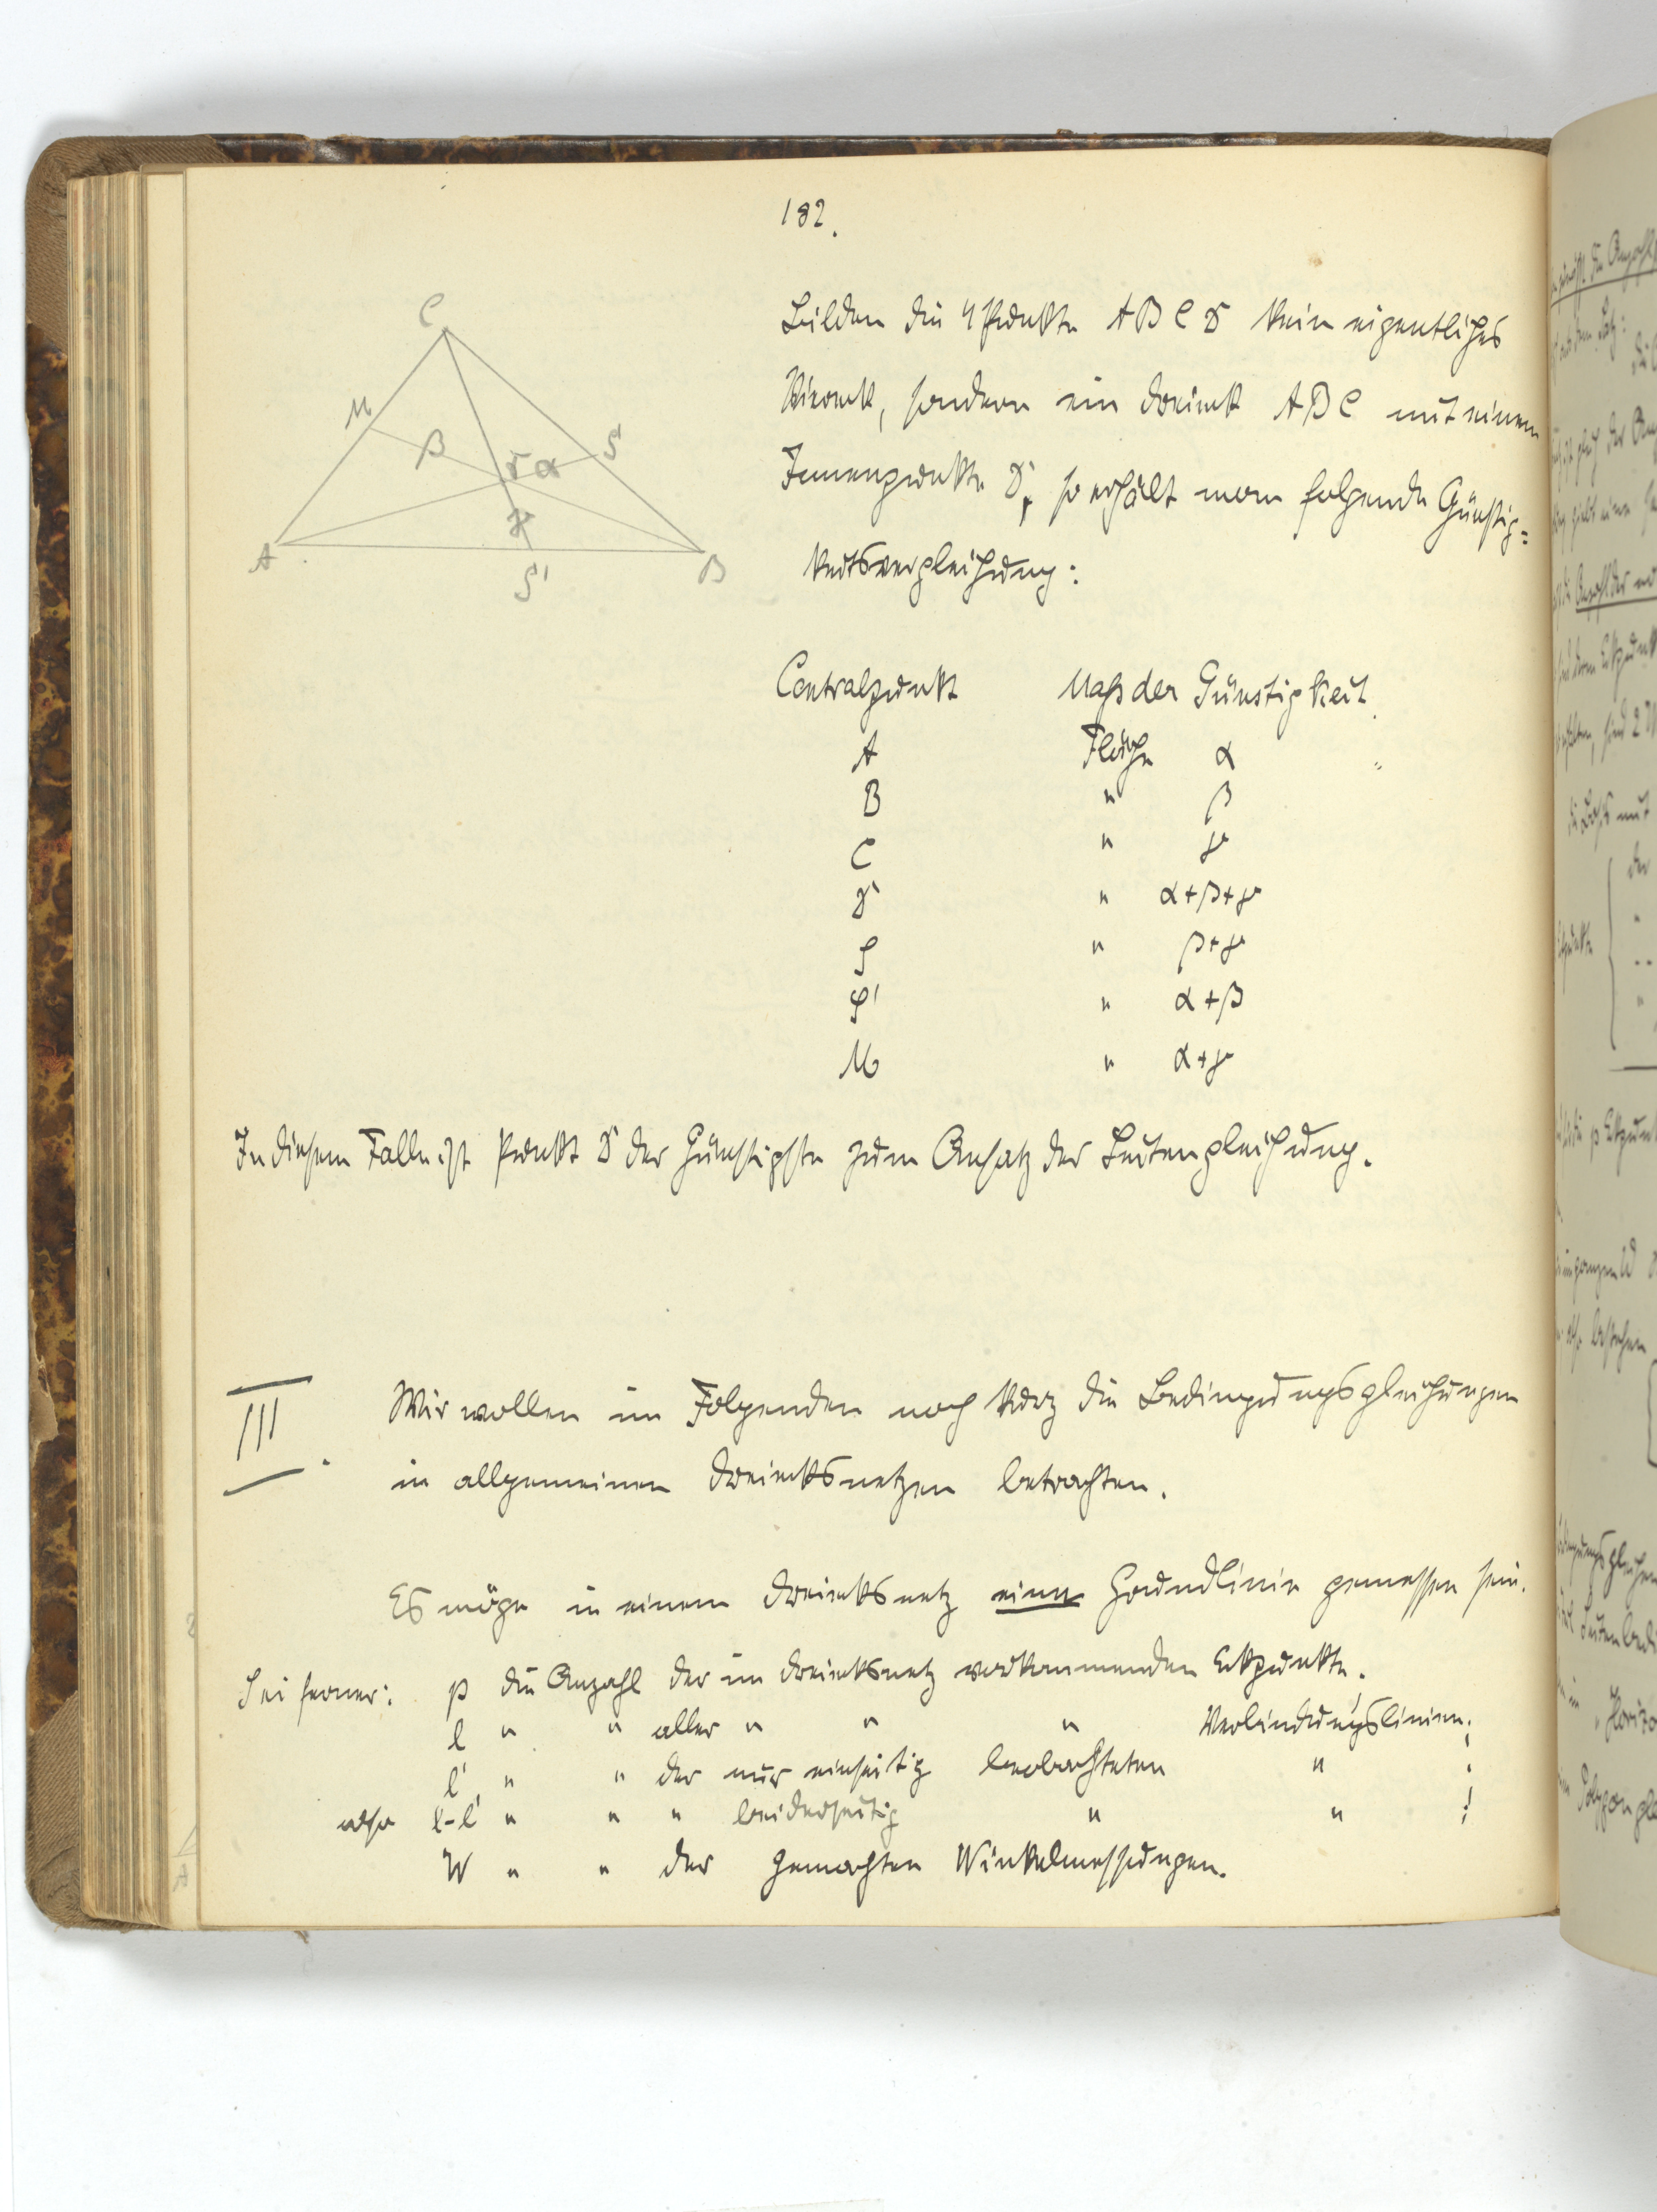 182.
C
M
β
δ α
S
γ
A
B
S'
Bilden die 4 Punkte A B C D kein eigentliches
Viereck, sondern ein Dreieck A B C mit einem
Innenpunkte D, so erhält man folgende Günstig=
keitsvergleichung:
Centralpunkt Maß der Günstigkeit.
A Fläche α
B " β
C " γ
D " α+β+γ
S " β+γ
S' " α+β
M " α+γ
In diesem Falle ist Punkt D der günstigste zum Ansatz der Seitengleichung.
III. Wir wollen im Folgenden noch kurz die Bedingungsgleichungen
in allgemeinen Dreiecksnetzen betrachten.
Es möge in einem Dreiecksnetz eine Grundlinie gemessen sein.
Sei ferner: p die Anzahl der im Dreiecksnetz vorkommenden Eckpunkte;
l " " aller " " " Verbindungslinien;
l' " " der nur einseitig beobachteten " ;
also l-l' " " " beiderseitig " " ;
W " " der gemachten Winkelmessungen.